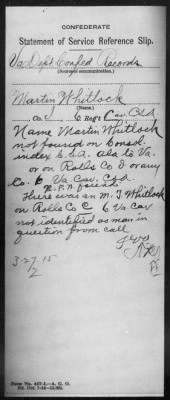 CONFEDERATE
Statement of Service Reference Slip.
Va Dept Confed Records
(Source of communication.)
Martin Whitlock
(Name.)
Co. , 6 Reg't Cav. CSA
Name Martin Whitlock
not found on Consol.
index C.S.A. Ala to Va.
or on Rolls Co I or any
Co. 6 Va Cav. CSA.
N.P.R. found
There was an M. J. Whitlock
on Rolls Co C 6 Va Cav
not identified as man in
question from call
3-27-15
2